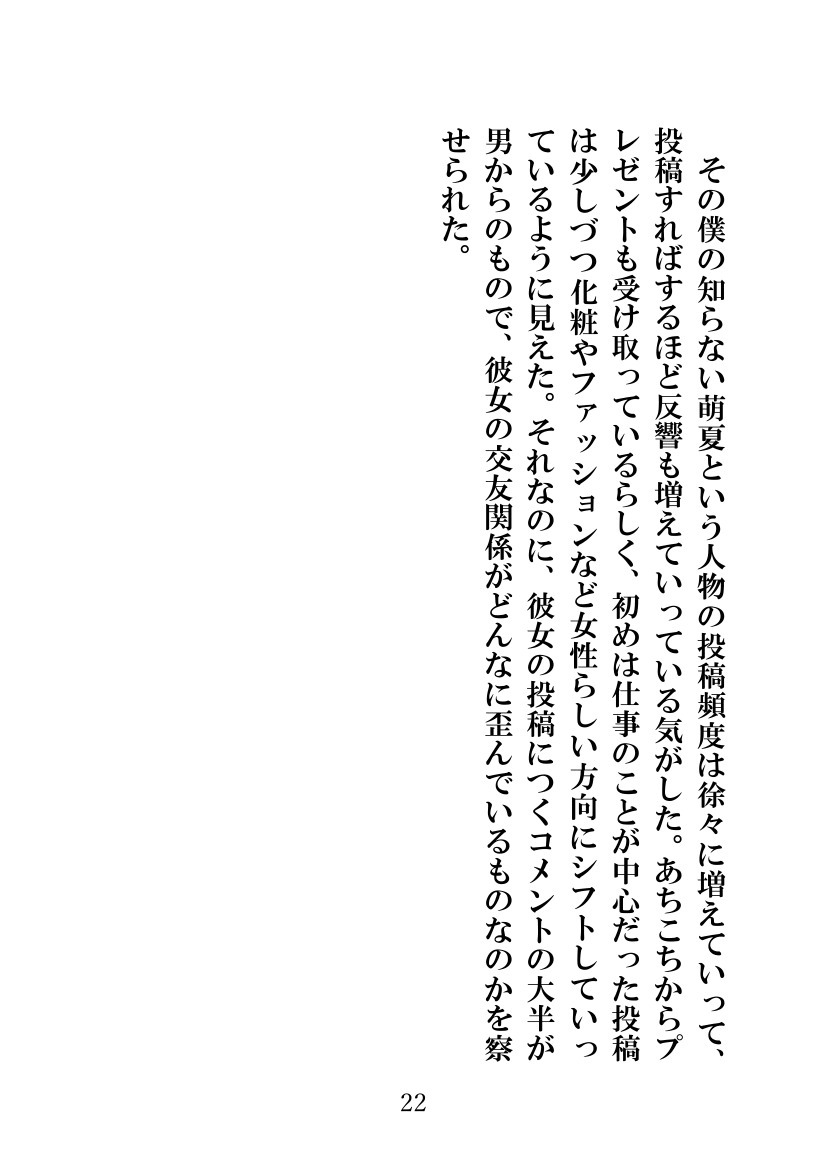 その僕の知らない萌夏という人物の投稿頻度は徐々に増えていって、
投稿すればするほど反響も増えていっている気がした。あちこちからプ
レゼントも受け取っているらしく、初めは仕事のことが中心だった投稿
は少しづつ化粧やファッションなど女性らしい方向にシフトしていっ
ているように見えた。それなのに、彼女の投稿につくコメントの大半が
男からのもので、彼女の交友関係がどんなに歪んでいるものなのかを察
せられた。
22